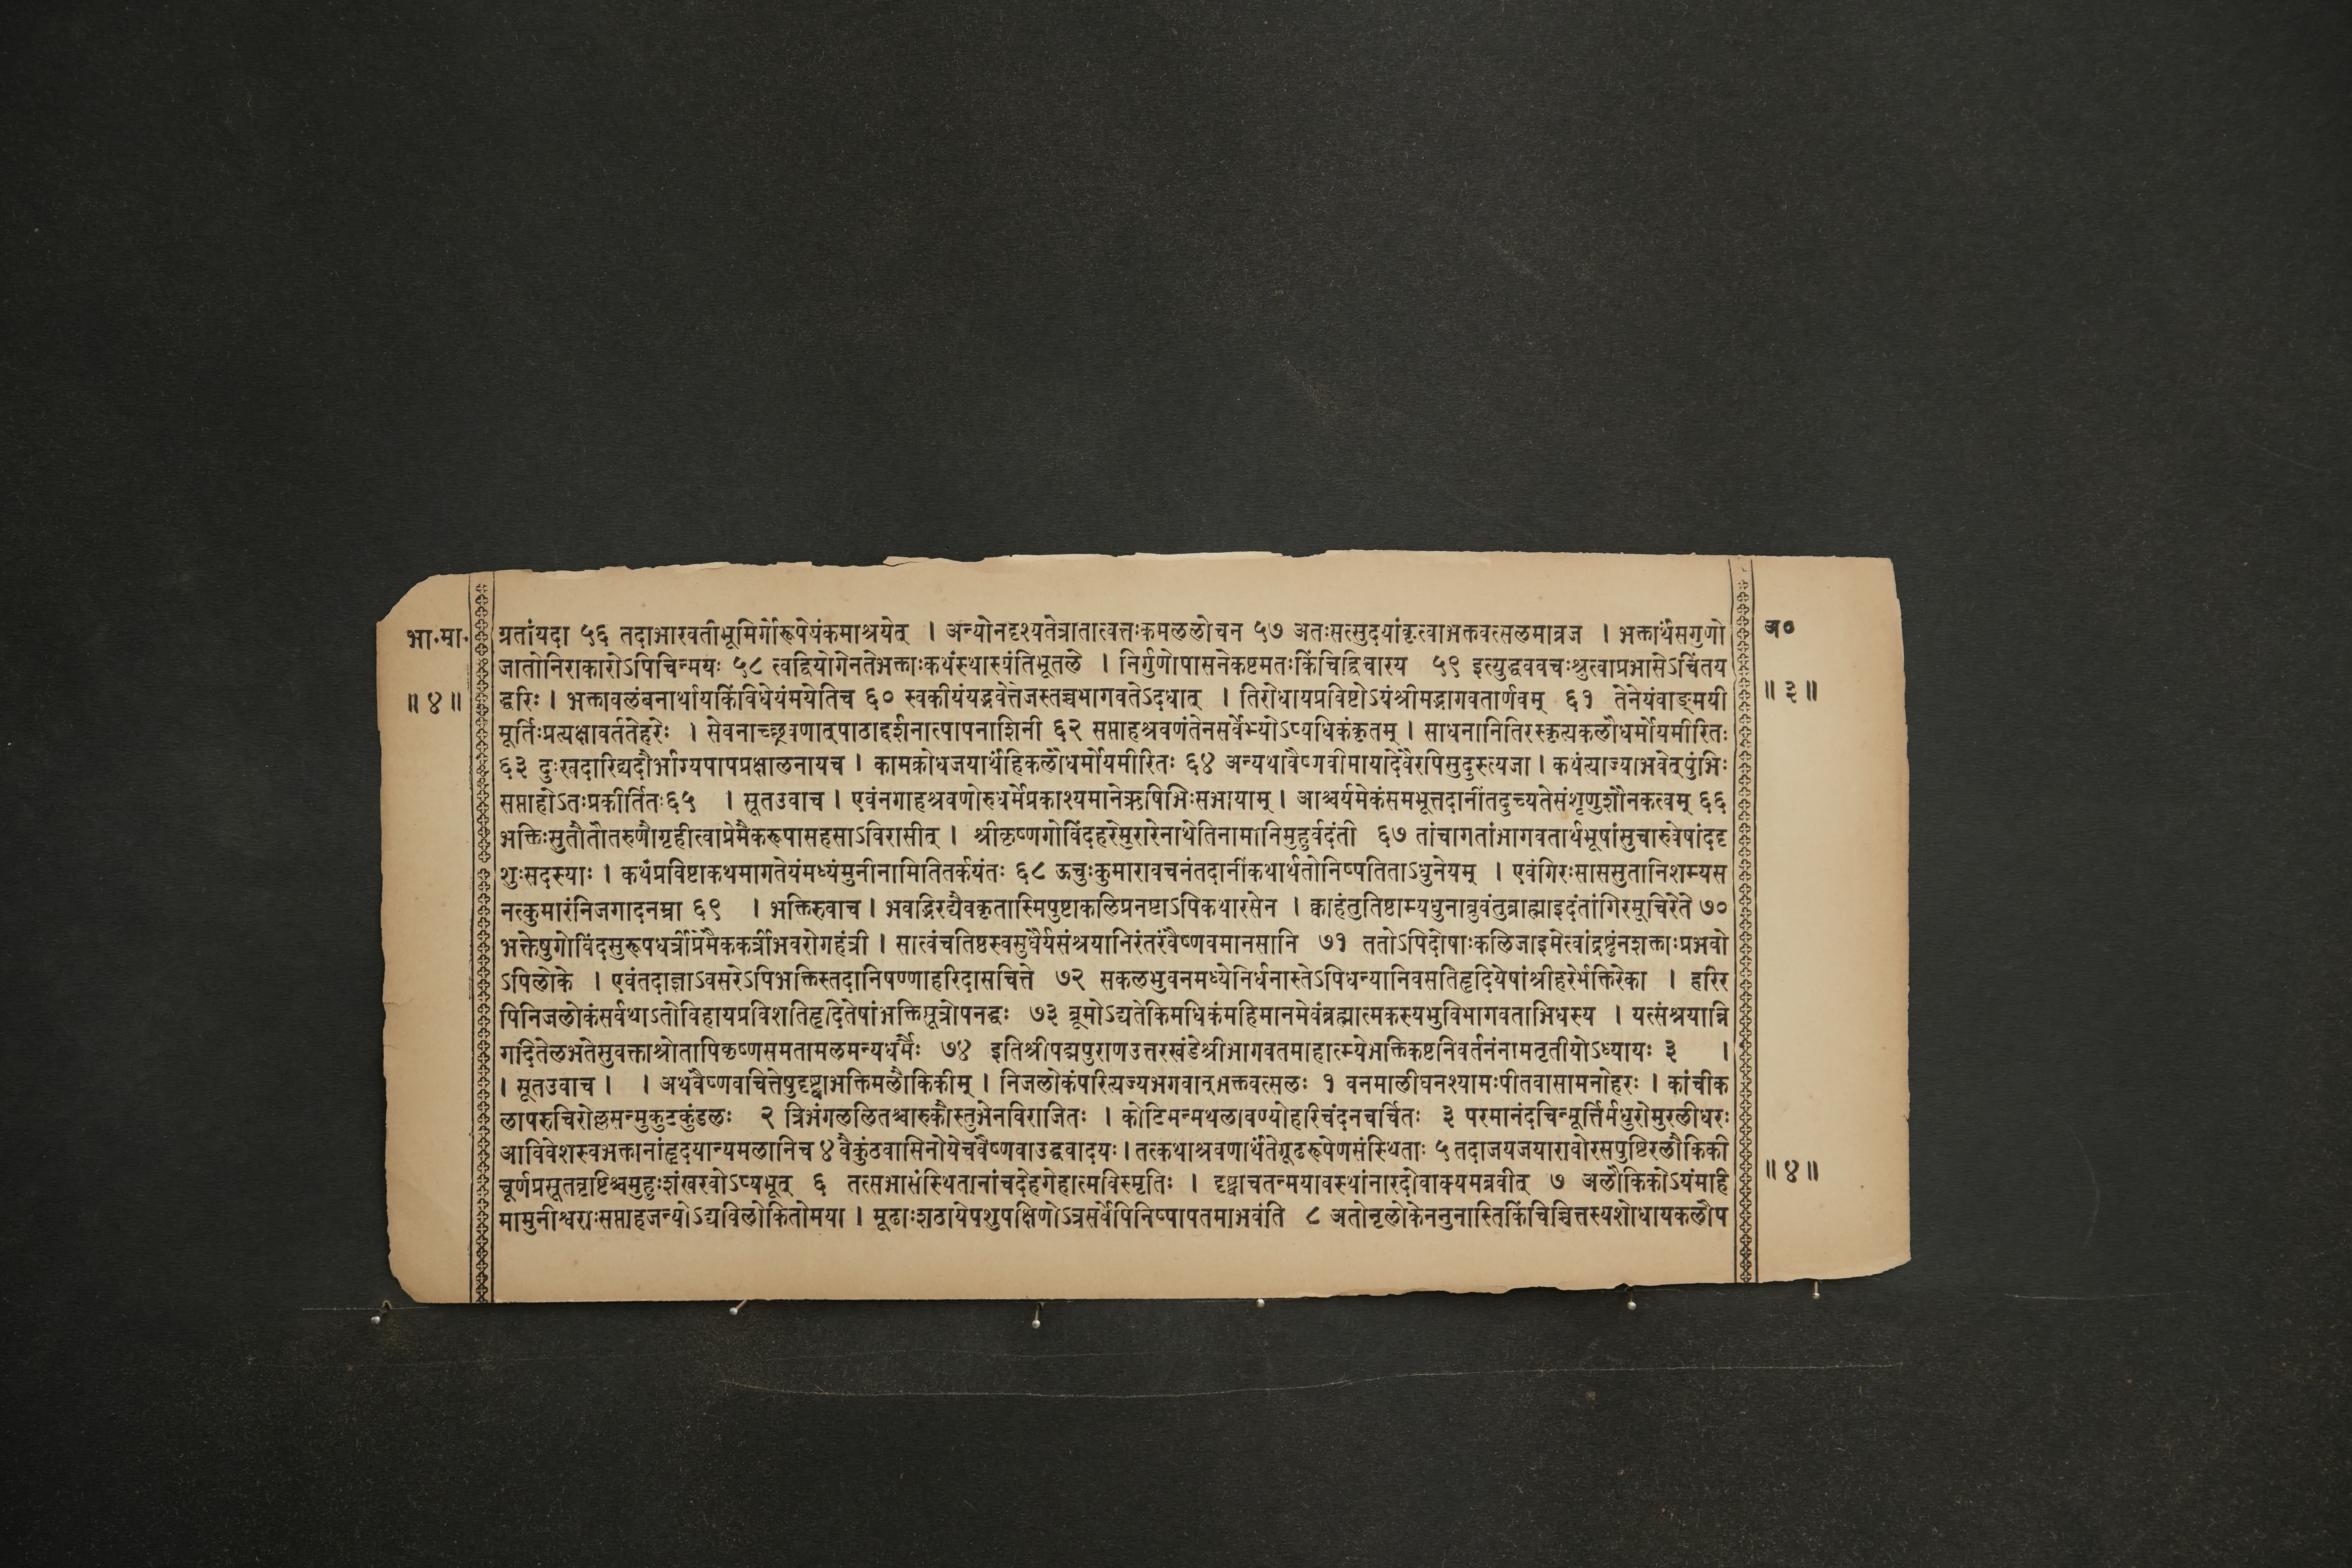 भा.मा. ग्रतांयदा ५६ तदाभारवतीभूमिर्गोरूपेयंकमाश्रयेत् । अन्योनदृश्यतेत्रातात्वत्तःकमललोचन ५७ अतःसत्सुदयांकृत्वाभक्तवत्सलमाव्रज । भक्तार्थंसगुणो अ०
जातोनिराकारोऽपिचिन्मयः ५८ त्वद्वियोगेनतेभक्ताःकथंस्थास्यंतिभूतले । निर्गुणोपासनेकष्टमतःकिंचिद्विचारय ५९ इत्युद्धववचःश्रुत्वाप्रभासेऽचिंतय
॥ ४ ॥ द्धरिः । भक्तावलंबनार्थायकिंविधेयंमयेतिच ६० स्वकीयंयद्भवेत्तेजस्तच्चभागवतेऽदधात् । तिरोधायप्रविष्टोऽयंश्रीमद्भागवतार्णवम् ६१ तेनेयंवाङ्मयी ॥ ३ ॥
मूर्तिःप्रत्यक्षावर्ततेहरेः । सेवनाच्छ्रवणात्पाठाद्दर्शनात्पापनाशिनी ६२ सप्ताहश्रवणंतेनसर्वेभ्योऽप्यधिकंकृतम् । साधनानितिरस्कृत्यकलौधर्मोयमीरितः
६३ दुःखदारिद्र्यदौर्भाग्यपापप्रक्षालनायच । कामक्रोधजयार्थंहिकलौधर्मोयमीरितः ६४ अन्यथावैष्णवीमायादेवैरपिसुदुस्त्यजा । कथंत्याज्याभवेत्पुंभिः
सप्ताहोऽतःप्रकीर्तितः६५ । सूतउवाच । एवंनगाहश्रवणोरुधर्मेप्रकाश्यमानेऋषिभिःसभायाम् । आश्चर्यमेकंसमभूत्तदानींतदुच्यतेसंशृणुशौनकत्वम् ६६
भक्तिःसुतौतौतरुणौगृहीत्वाप्रेमैकरूपासहसाऽविरासीत् । श्रीकृष्णगोविंदहरेमुरारेनाथेतिनामानिमुहुर्वदंती ६७ तांचागतांभागवतार्थभूषांसुचारुवेषांददृ
शुःसदस्याः । कथंप्रविष्टाकथमागतेयंमध्यंमुनीनामितितर्कयंतः ६८ ऊचुःकुमारावचनंतदानींकथार्थतोनिष्पतिताऽधुनेयम् । एवंगिरःसाससुतानिशम्यस
नत्कुमारंनिजगादनम्रा ६९ । भक्तिरुवाच । भवद्भिरद्यैवकृतास्मिपुष्टाकलिप्रनष्टाऽपिकथारसेन । क्वाहंतुतिष्ठाम्यधुनाब्रुवंतुब्राह्माइदंतांगिरमूचिरेते ७०
भक्तेषुगोविंदसुरूपधर्त्रीप्रेमैककर्त्रीभवरोगहंत्री । सात्वंचतिष्ठस्वसुधैर्यसंश्रयानिरंतरंवैष्णवमानसानि ७१ ततोऽपिदोषाःकलिजाइमेत्वांद्रष्टुंनशक्ताःप्रभवो
ऽपिलोके । एवंतदाज्ञाऽवसरेऽपिभक्तिस्तदानिषण्णाहरिदासचित्ते ७२ सकलभुवनमध्येनिर्धनास्तेऽपिधन्यानिवसतिहृदियेषांश्रीहरेर्भक्तिरेका । हरिर
पिनिजलोकंसर्वथाऽतोविहायप्रविशतिहृदितेषांभक्तिसूत्रोपनद्धः ७३ ब्रूमोऽद्यतेकिमधिकंमहिमानमेवंब्रह्मात्मकस्यभुविभागवताभिधस्य । यत्संश्रयान्नि
गदितेलभतेसुवक्ताश्रोतापिकृष्णसमतामलमन्यधर्मैः ७४ इतिश्रीपद्मपुराणउत्तरखंडेश्रीभागवतमाहात्म्येभक्तिकष्टनिवर्तनंनामतृतीयोऽध्यायः ३ ।
। सूतउवाच । । अथवैष्णवचित्तेषुदृष्ट्वाभक्तिमलौकिकीम् । निजलोकंपरित्यज्यभगवान्भक्तवत्सलः १ वनमालीघनश्यामःपीतवासामनोहरः । कांचीक
लापरुचिरोल्लसन्मुकुटकुंडलः २ त्रिभंगललितश्चारुकौस्तुभेनविराजितः । कोटिमन्मथलावण्योहरिचंदनचर्चितः ३ परमानंदचिन्मूर्त्तिर्मधुरोमुरलीधरः
आविवेशस्वभक्तानांहृदयान्यमलानिच ४ वैकुंठवासिनोयेचवैष्णवाउद्धवादयः । तत्कथाश्रवणार्थंतेगूढरूपेणसंस्थिताः ५ तदाजयजयारावोरसपुष्टिरलौकिकी
चूर्णप्रसूनवृष्टिश्चमुहुःशंखरवोऽप्यभूत् ६ तत्सभासंस्थितानांचदेहगेहात्मविस्मृतिः । दृष्ट्वाचतन्मयावस्थांनारदोवाक्यमब्रवीत् ७ अलौकिकोऽयंमहि ॥ ४ ॥
मामुनीश्वराःसप्ताहजन्योऽद्यविलोकितोमया । मूढाःशठायेपशुपक्षिणोऽत्रसर्वेपिनिष्पापतमाभवंति ८ अतोनृलोकेननुनास्तिकिंचिच्चित्तस्यशोधायकलौप